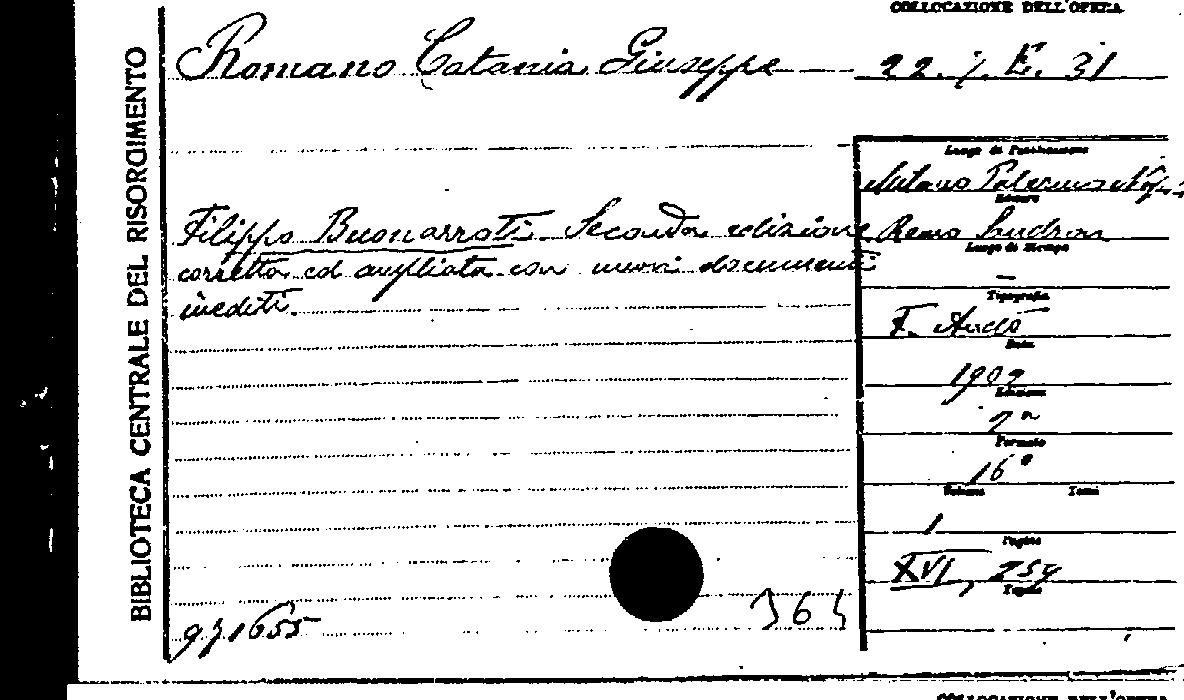 COLLOCAZIONE DELL'OPERA
Romano Catania Giuseppe
22. 7. E. 31
BIBLIOTECA CENTRALE DEL RISORGIMENTO
Luogo di Pubblicazione
Milano Palermo
Editore
Filippo Buonarroti. Seconda edizione
Remo Sandron
Luogo di Stampa
corretta ed ampliata con nuovi documenti
inediti.
—
Tipografia
F. Andò
Data
1902
Edizione
2ª
Formato
16°
Volume Tomi
1
Pagine
XVI, 259
Tavole
364
971655
COLLOCAZIONE DELL'OPERA